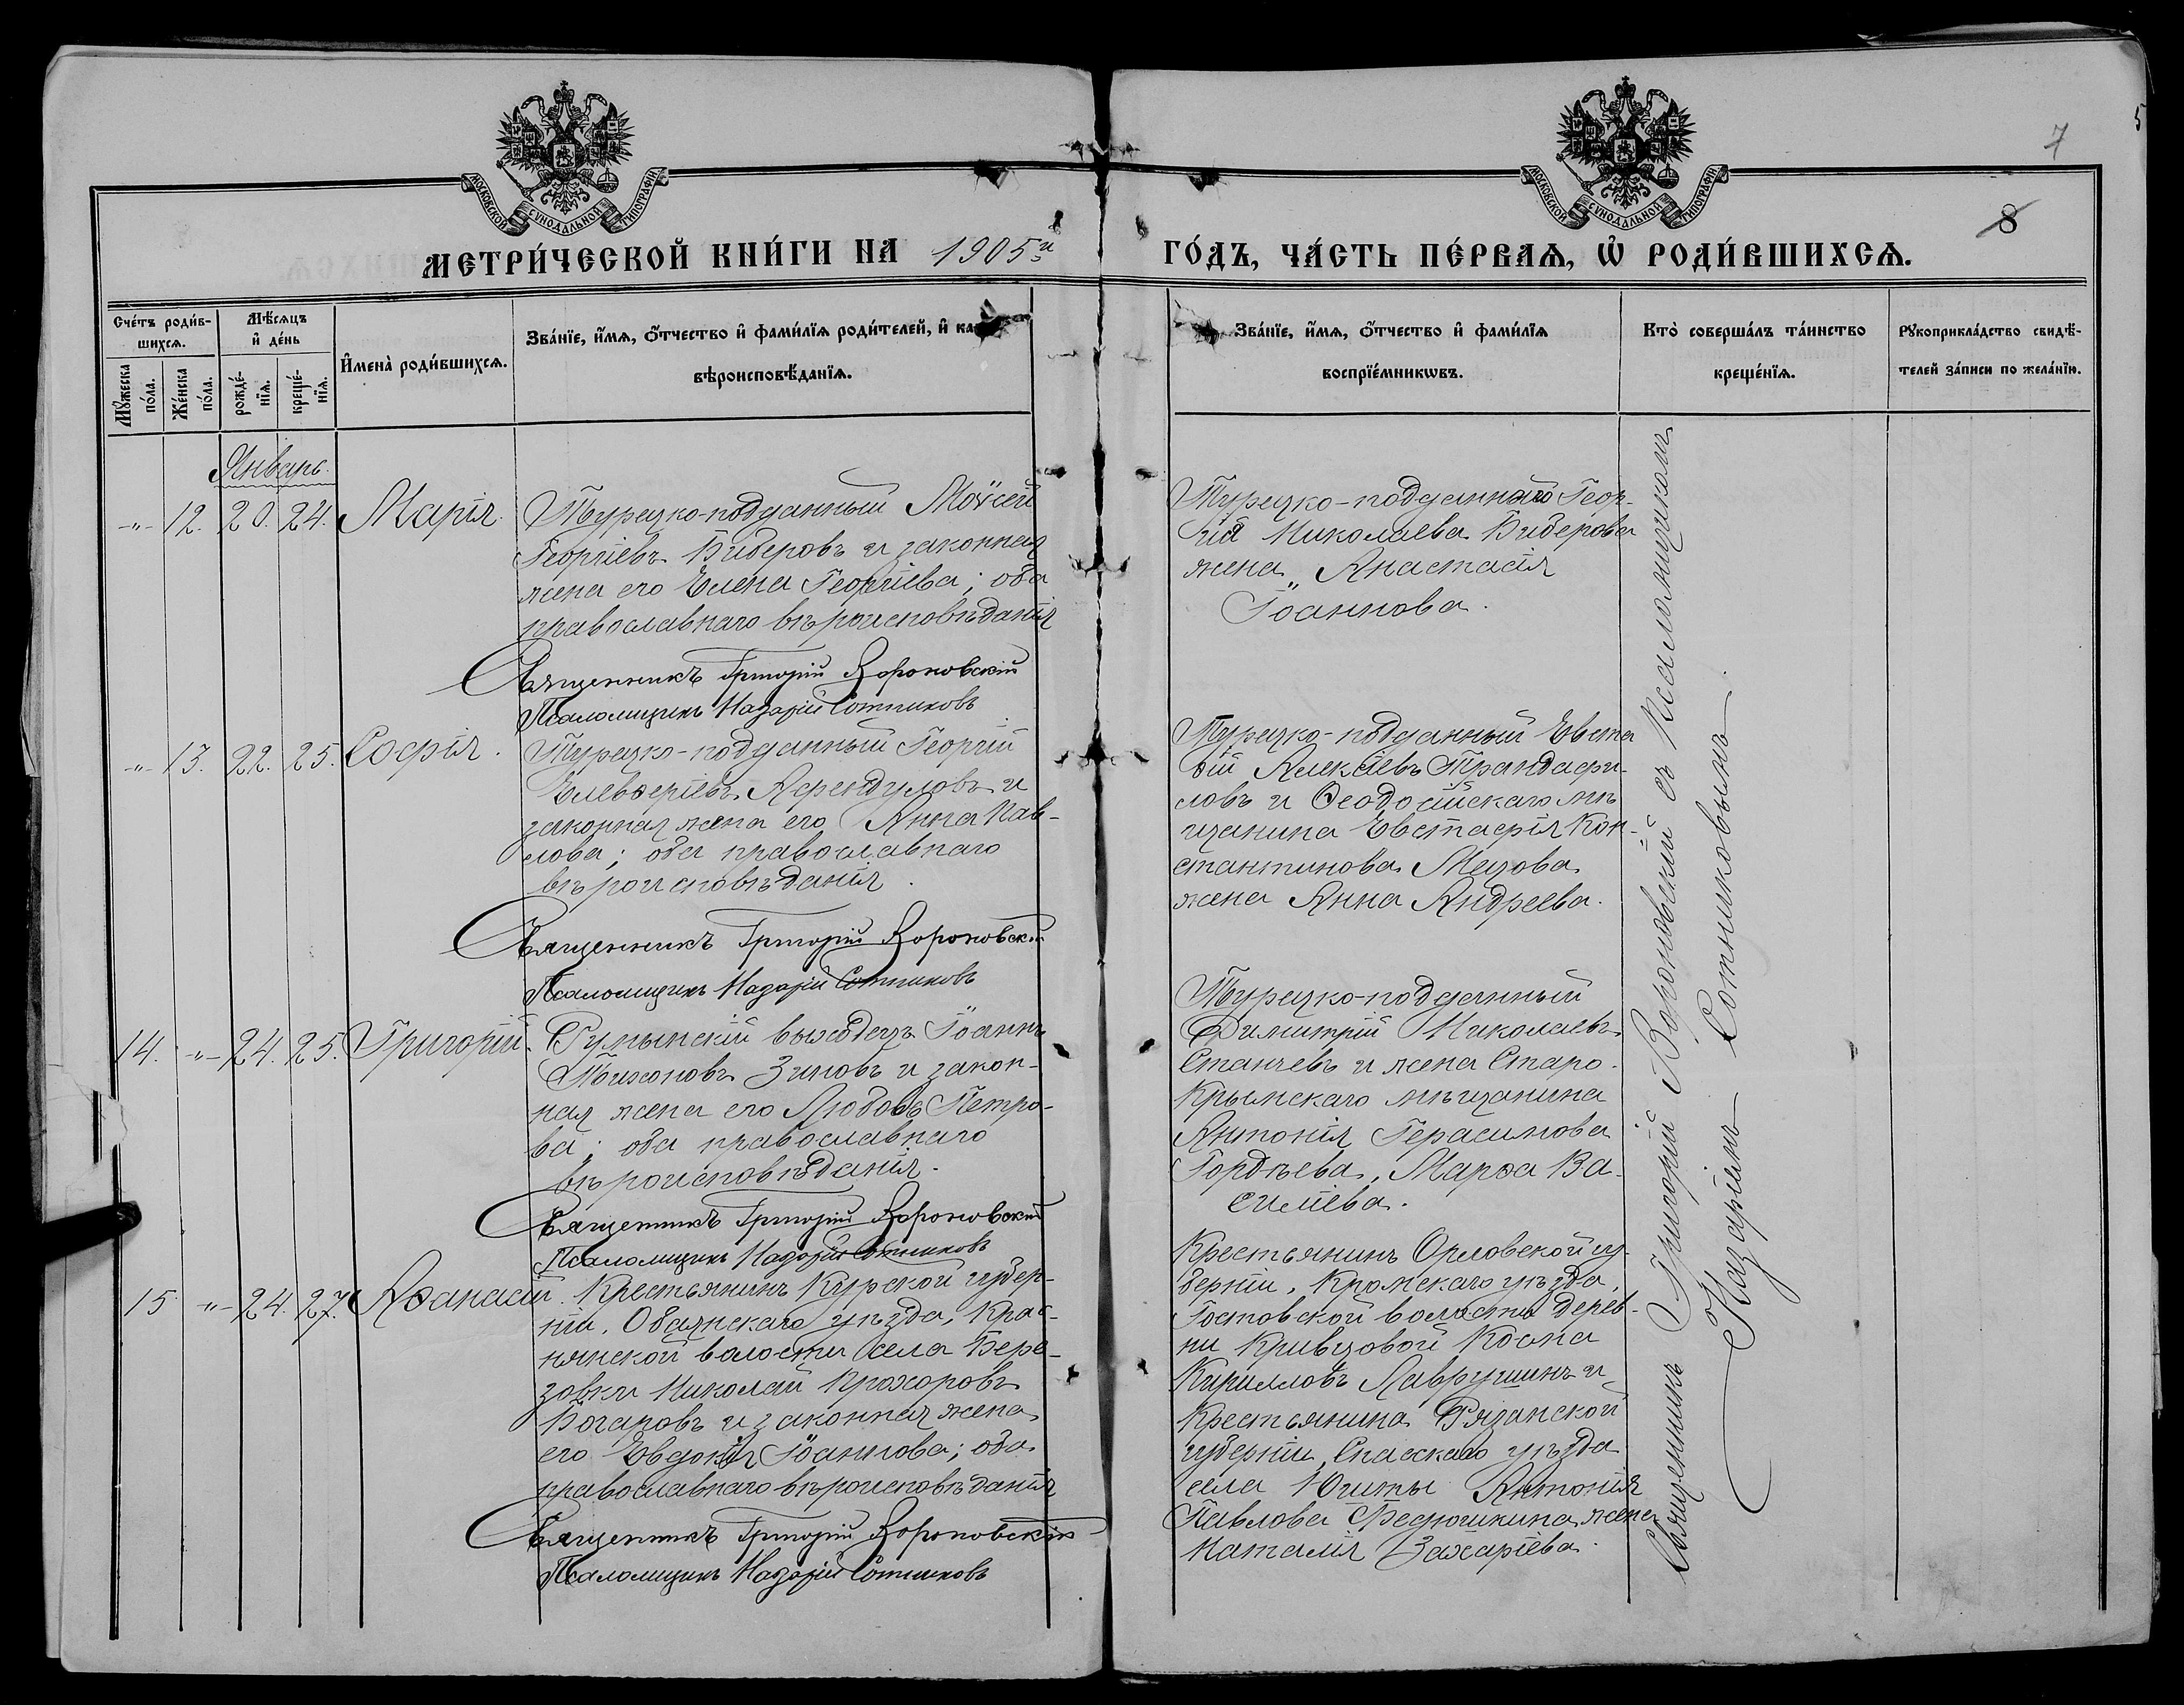 7
5
8
МОСКОВСКОЙ СУНОДАЛЬНОЙ ТИПОГРАФІИ
МОСКОВСКОЙ СУНОДАЛЬНОЙ ТИПОГРАФІИ
МЕТРИ́ЧЕСКОЙ КНИ́ГИ НА 1905й
ГО́ДЪ, ЧА́СТЬ ПЕ́РВАѦ, Ѽ РОДИ́ВШИХСѦ.
Сче́тъ роди́в-
шихсѧ.
Мꙋ́жеска по́ла.
Же́нска по́ла.
Мѣ́сѧцъ
и҆ де́нь
рожде́-
нїѧ.
креще́-
нїѧ.
И҆менà роди́вшихсѧ.
Зва́нїе, и҆́мѧ, ѻ҆́тчество и҆ фами́лїѧ роди́телей, и҆ ка
вѣроисповѣ́данїѧ.
Зва́нїе, и҆́мѧ, ѻ҆́тчество и҆ фами́лїѧ
воспрїе́мникѡвъ.
Кто̀ соверша́лъ та́инство
креще́нїѧ.
Рꙋкоприкла́дство свидѣ́-
телей за́писи по жела́нїю.
Январь.
-"- 12. 20. 24. Марія.
Турецко-подданный Моѵсей
Георгіевъ Бидеровъ и законная
жена его Елена Георгіева; оба
православнаго вѣроисповѣданія
Священникъ Григорій Вороновскій
Псаломщикъ Назарій Сотниковъ
Турецко-подданнаго Геор-
гія Николаева Бидерова
жена Анастасія
Іоаннова.
-"- 13. 22. 25. Софія.
Турецко-подданный Георгій
Елевѳеріевъ Афендуловъ и
законная жена его Анна Пав-
лова; оба православнаго
вѣроисповѣданія.
Священникъ Григорій Вороновскій
Псаломщикъ Назарій Сотниковъ
Турецко-подданный Евста
ѳій Алексіевъ Трандафи-
ловъ и Ѳеодосійскаго мѣ
щанина Евстафія Кон-
стантинова Мецова
жена Анна Андреева.
14. -"- 24. 25. Григорій.
Румынскій выходецъ Іоаннъ
Тихоновъ Зиновъ и закон-
ная жена его Любовь Петро-
ва; оба православнаго
вѣроисповѣданія.
Священникъ Григорій Вороновскій
Псаломщикъ Назарій Сотниковъ
Турецко-подданный
Димитрій Николаевъ
Станчевъ и жена Старо-
Крымскаго мѣщанина
Антонія Герасимова
Гордѣева, Марѳа Ва-
силіева.
15 -"- 24. 27. Аѳанасій.
Крестьянинъ Курской губер-
ніи, Обаянскаго уѣзда, Крас-
нянской волости села Бере-
зовки Николай Прохоровъ
Бочаровъ и законная жена
его Евдокія Іоаннова; оба
православнаго вѣроисповѣданія
Священникъ Григорій Вороновскій
Псаломщикъ Назарій Сотниковъ
Крестьянинъ Орловской гу-
берніи, Кромскаго уѣзда,
Гостовской волости дерев-
ни Кривцовой Косма
Кирилловъ Лаврушинъ и
Крестьянина Рязанской
губерніи, Спасскаго уѣзда
села Ючиты Антонія
Павлова Федюшкина жена
Наталія Захаріева.
Священникъ Григорій Вороновскій съ Псаломщикомъ
Назаріемъ Сотниковымъ